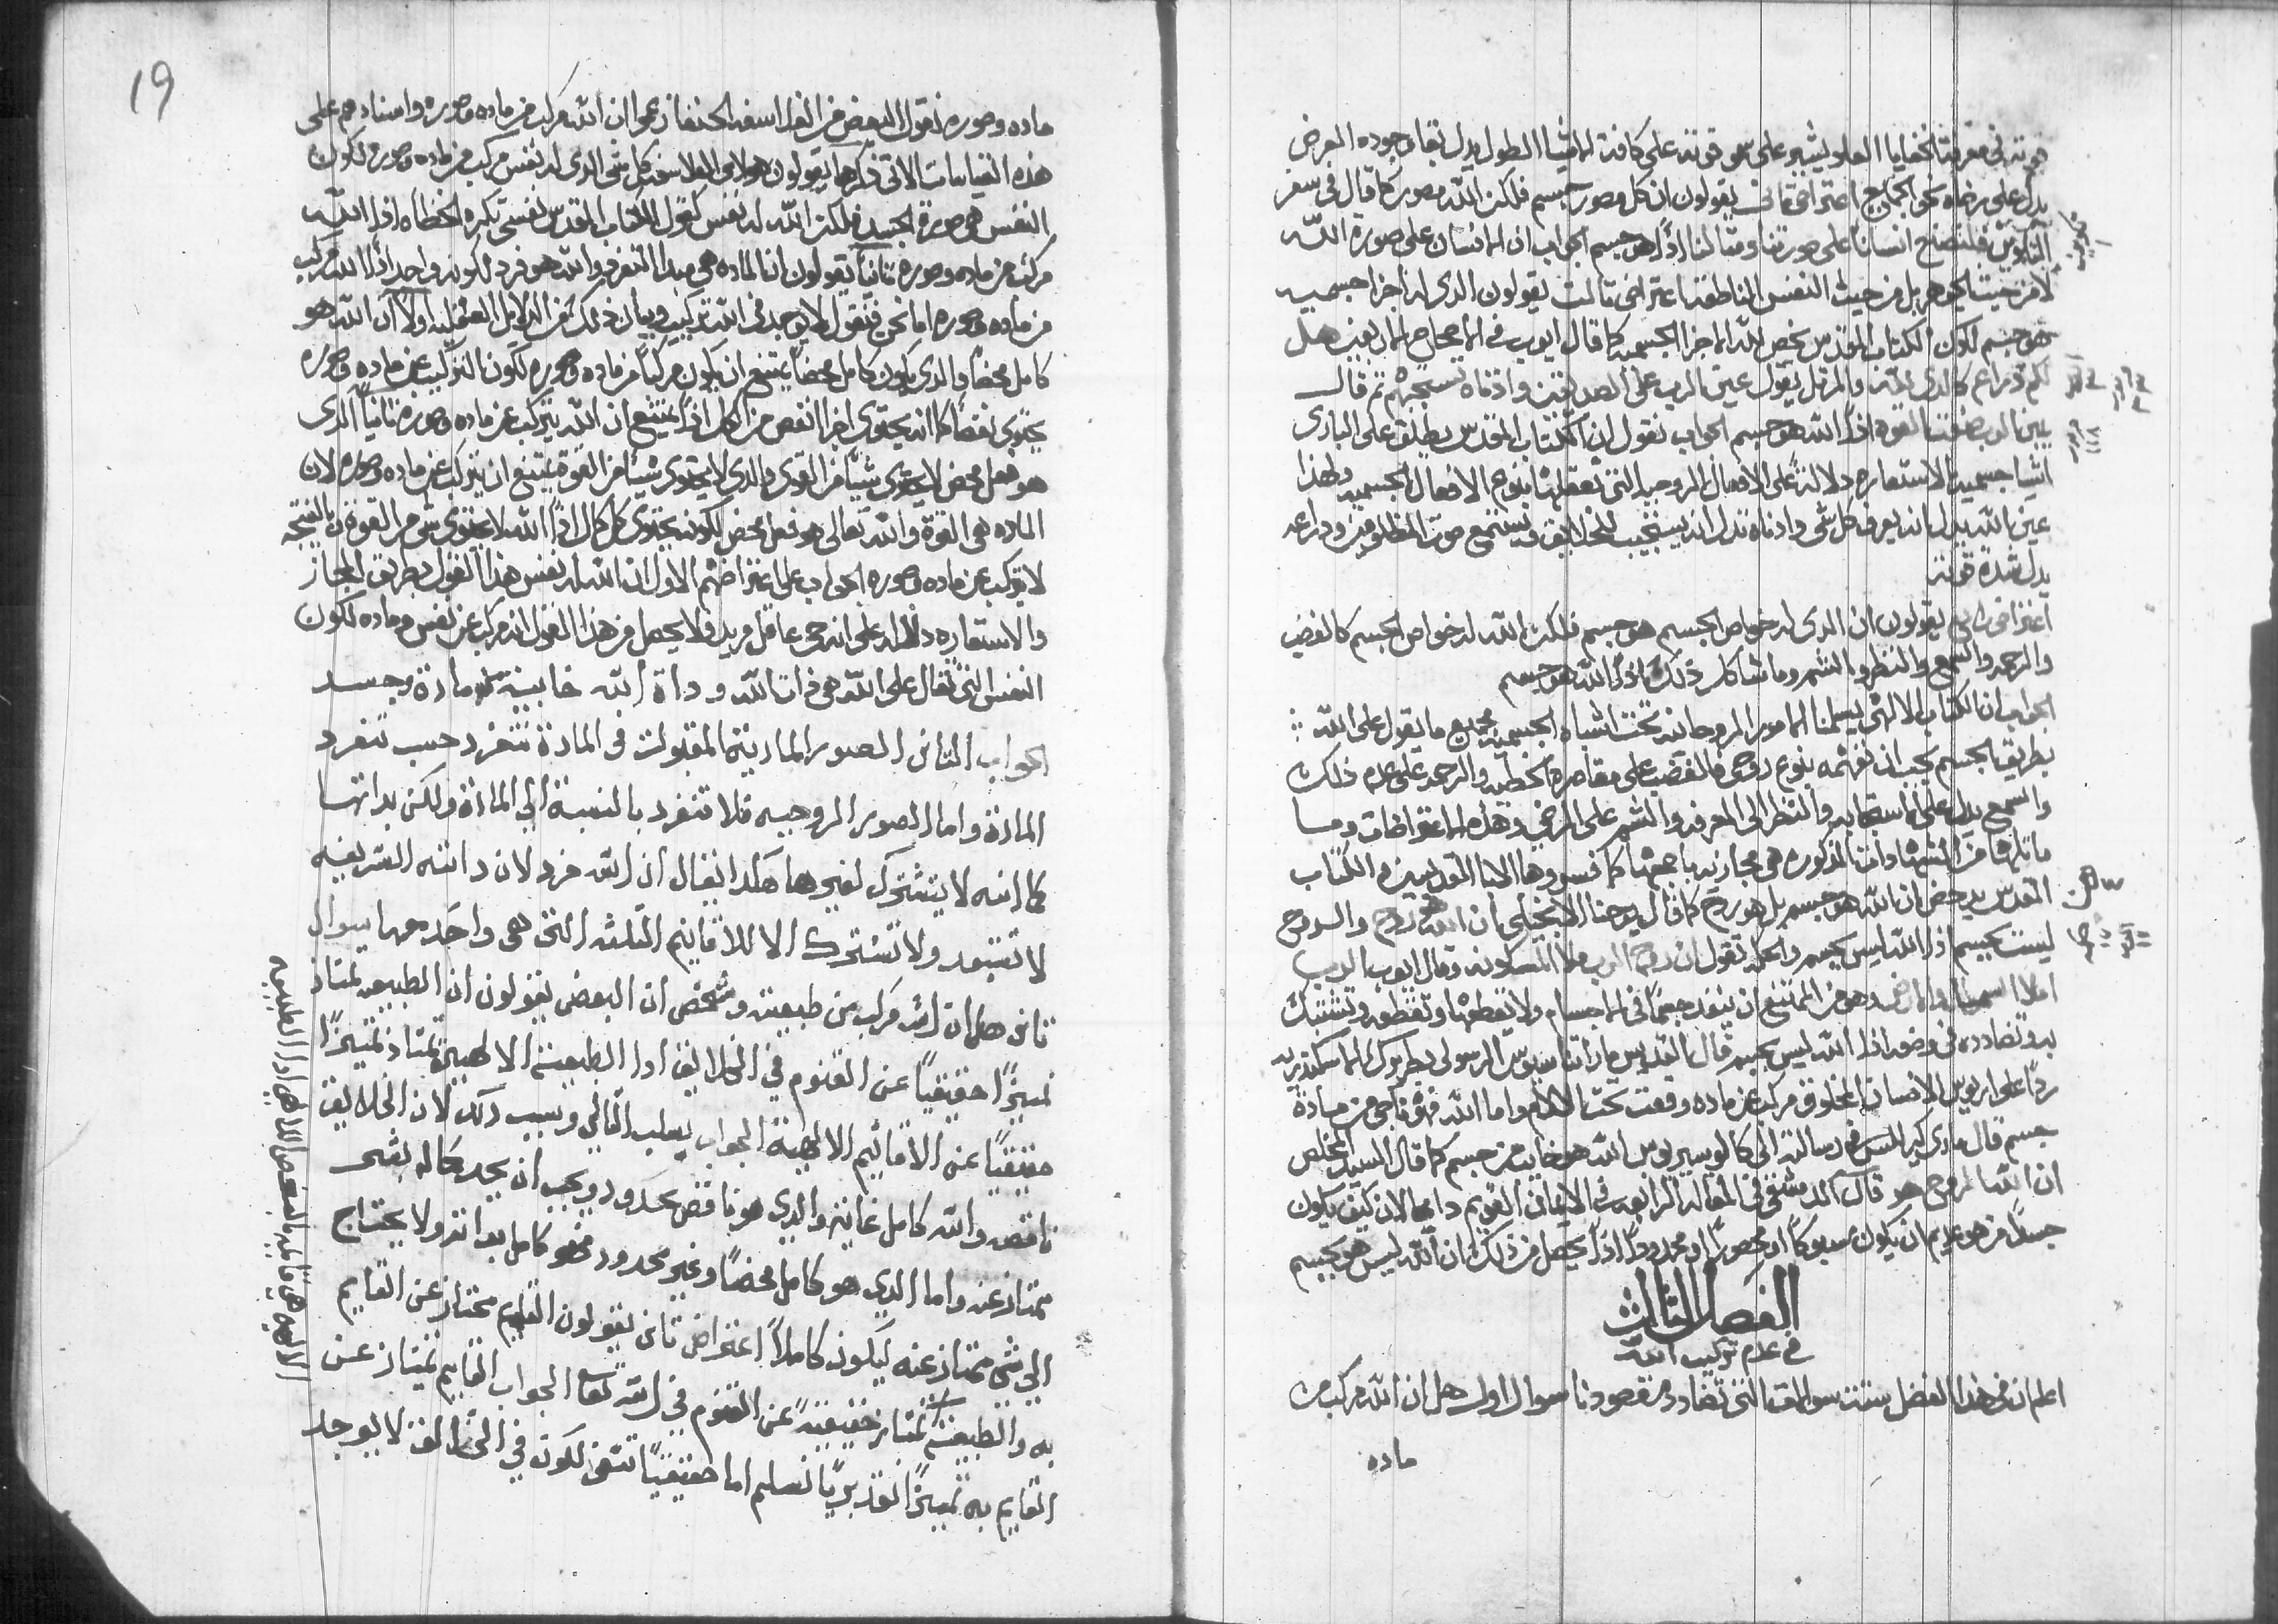 قوته في معرفة الخفايا العلو يشير على سمو قوته على كافة الاشيا الطول يدل بقا وجوده العرض
يدل على رضاه نحو الجميع اعتراض ثاني يقولون ان كل مصور جسم فلكن الله مصور كما قال في سفر
التكوين فلنصنع انسانا على صورتنا ومثالنا اذا الله هو جسم الجواب ان الانسان على صورة الله
لا من حيث الجوهر بل من حيث النفس الناطقة اعتراض ثالث يقولون الذي له اجزا جسميه
هو جسم لكون الكتاب المقدس يخص لله الاجزا الجسميه كما قال ايوب في الاصحاح الاربعين هل
لكم ذراع كالذي لله والمرتل يقول عين الرب على الصديقين واذناه تستجبهم ثم قال
يمين الرب صنعت القوه اذا الله هو جسم الجواب نقول ان الكتاب المقدس يطلق على الباري
اشيا جسميه بالاستعاره دلالة على الافعال الروحيه التي تعقلها بنوع الافعال الجسميه ولهذا
عين الله يدل انه يعرف كل شي واذناه تدل انه يستجيب للخلايق ويستمع صوت المظلومين وذراعه
يدل شدة قوته
اعتراض رابع يقولون ان الذي له خواص الجسم هو جسم فلكن الله له خواص الجسم كالغضب
والرحمه والسمع والنظر والشم وما شاكل ذلك اذا الله هو جسم
الجواب ان الكتاب الالهي يعلمنا الامور الروحانيه تحت اشباه الجسميه فجميع ما يقول على الله
بطريق الجسم يجب ان نفهمه بنوع روحي فالغضب على مقاصرة الخطيه والرحمه على عدم ذلك
والسمع يدل على الاستجابه والنظر الى المعرفه والشم على الرضى وهذه الاعتراضات وما
ماثلها من الشهادات المذكوره هي مجازيه باجمعها كما فسروها الابا القديسين والكتاب
المقدس يدحض ان الله هو جسم بل هو روح كما قال يوحنا الانجيلي ان الله هو روح والروح
ليست بجسم اذا الله ليس بجسم والحكمه تقول ان روح الرب ملا المسكونه وقال ايوب الرب
املا السما والارض وهو من الممتنع ان ينفد جميعا في الاجسام ولا يقطعها وتقطعه وتشتبك
به وتضادده في وضعه اذا الله ليس بجسم قال القديس مار اتناسيوس الرسولي بطريرك الاسكندريه
ردا على اريوس الانسان المخلوق مركب من ماده وقعت تحت الالام واما الله فهو ناجي من مادة
جسم قال ماري كيرللس في رسالته الى كالوسيريوس الله هو خايب من جسم كما قال السيد المخلص
ان الله الروح هو قال الدمشقي في المقاله الرابعه في الايمان القويم داعما لان كيف يكون
جسدا من هو عديم ان يكون مسبوكا او محصورا او محدودا اذا يحصل من ذلك ان الله ليس هو بجسم
الفصل الثالث
في عدم تركيب الله
اعلم ان في هذا الفصل ستة سوالات التي تضادد مقصودنا سوال اول هل ان الله مركب من
ماده
19
ماده وصوره نقول البعض من الفلاسفه الحنفا زعموا ان الله مركب من ماده وصوره واسنادهم على
هذه القياسات الاتي ذكرها يقولون هولاي الفلاسفه كل شي الذي له نفس مركب من ماده وصوره لكون
النفس هي صورة الجسد فلكن الله له نفس كقول الكتاب المقدس نفسي تكره الخطاه اذا الله
مركب من ماده وصوره ثانيا يقولون ان الماده هي مبدا التفرد والله هو فرد لكونه واحد اذا الله مركب
من ماده وصوره اما نحن فنقول لا يوجد في الله تركيب وبيان ذلك من الدلايل العقليه اولا ان الله هو
كامل محضا والذي يكون كامل محضا يمتنع ان يكون مركبا من ماده وصوره لكون التركيب من ماده وصوره
يحتوي نقصا كما انه يحتوي اجزا انقص من الكل اذا يمتنع ان الله يتركب من ماده وصوره ثانيا الذي
هو فعل محض لا يحتوي شيا من القوى والذي لا يحتوي شيا من القوة يمتنع ان يتركب من ماده وصوره لان
الماده هي القوة والله تعالى هو فعل محض لكونه يحتوي كل كمال اذا الله لا يحتوي شي من القوة وبالنتيجه
لا يتركب من ماده وصوره الجواب على اعتراضهم الاول ان الله له نفس هذا القول بطريق المجاز
والاستعاره دلاله على انه حي عاقل مريد ولا يحصل من هذا القول انه مركب من نفس وماده لكون
النفس التي تقال على الله هي ذات الله وداة الله خايبة من مادة وجسد
الجواب الثاني الصور الماديته المقبولت في المادة تتفرد حسب تفرد
المادة واما الصور الروحيه فلا تتفرد بالنسبة الى المادة ولكن بداتها
كما انه لا يتشترك لغيرها هكدا يقال ان الله فرد لان داته الشريفه
لا تتبعد ولا تشترك الا للاقانيم الثلثه التي هي واحد معها سوال
ثاني هل ان الله مركب من طبيعته وشخص ان البعض يقولون ان الطبيعه تمتاز
تميزا حقيقيا عن القنوم في الخلايق ادا الطبيعة الالهية تمتاز تميزا
حقيقيا عن الاقانيم الالهية الجواب يسلب التالي وسبب دلك لان الخلايق
ناقصه والله كامل غاية والدي هو ناقص محدود ويجب ان يجد كماله بشي
ممتاز عنه واما الدي هو كامل محضا وغير محدود فهو كامل بداته ولا يحتاج
الى شي ممتاز عنه ليكون كاملا اعتراض ثاني يقولون القايم ممتاز عن القايم
به والطبيعة تمتاز حقيقة عن القنوم في الله تعا الجواب القايم يمتاز عن
القايم به تميزا تقديريا نسلم اما حقيقيا ننفي لكون في الخالق لا يوجد